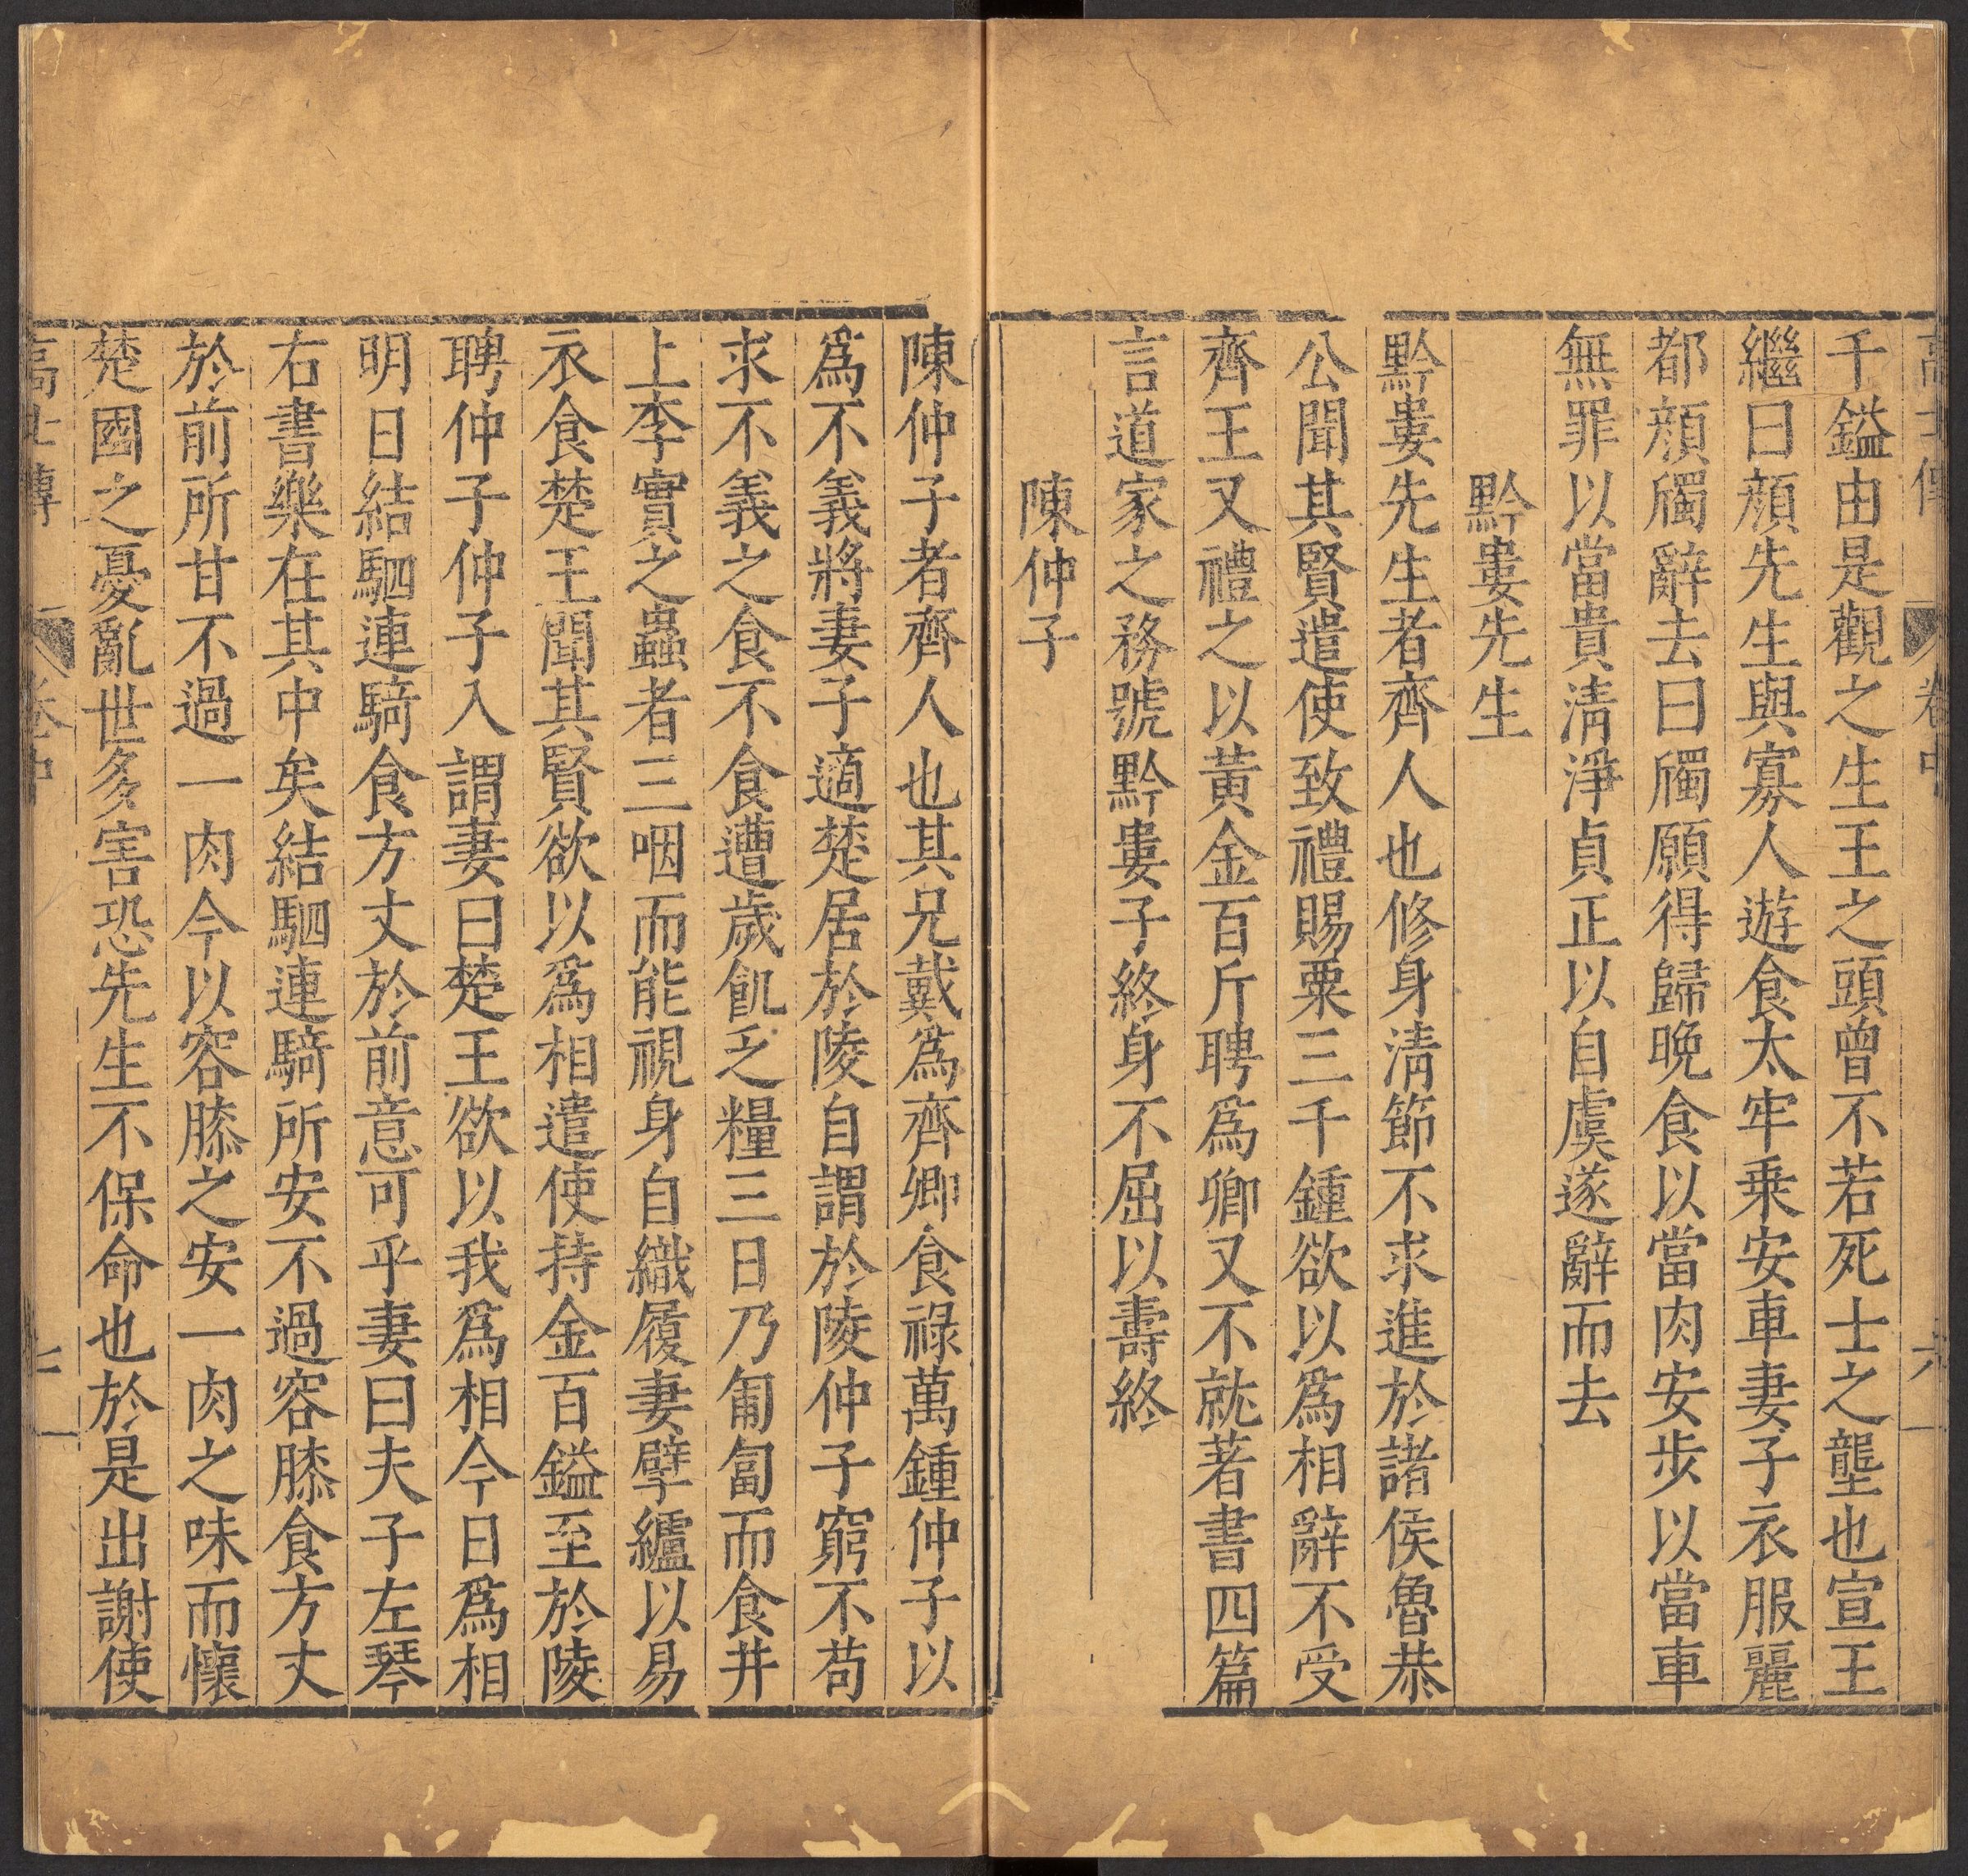 高士傳 卷中 六
千鎰由是觀之生王之頭曾不若死士之壟也宣王
繼曰顏先生與寡人遊食太牢乗安車妻子衣服麗
都顏斶辭去曰斶願得歸晚食以當肉安步以當車
無罪以當貴清淨貞正以自虞遂辭而去
黔婁先生
黔婁先生者齊人也修身清節不求進於諸侯魯恭
公聞其賢遣使致禮賜粟三千鍾欲以為相辭不受
齊王又禮之以黃金百斤聘為卿又不就著書四篇
言道家之務號黔婁子終身不屈以壽終
陳仲子
陳仲子者齊人也其兄戴為齊卿食祿萬鍾仲子以
為不義將妻子適楚居於陵自謂於陵仲子窮不苟
求不義之食不食遭歲飢乏糧三日乃匍匐而食井
上李實之蟲者三咽而能視身自織履妻擘纑以易
衣食楚王聞其賢欲以為相遣使持金百鎰至於陵
聘仲子仲子入謂妻曰楚王欲以我為相今日為相
明日結駟連騎食方丈於前意可乎妻曰夫子左琴
右書樂在其中矣結駟連騎所安不過容膝食方丈
於前所甘不過一肉今以容膝之安一肉之味而懷
楚國之憂亂世多害恐先生不保命也於是出謝使
高士傳 卷中 七